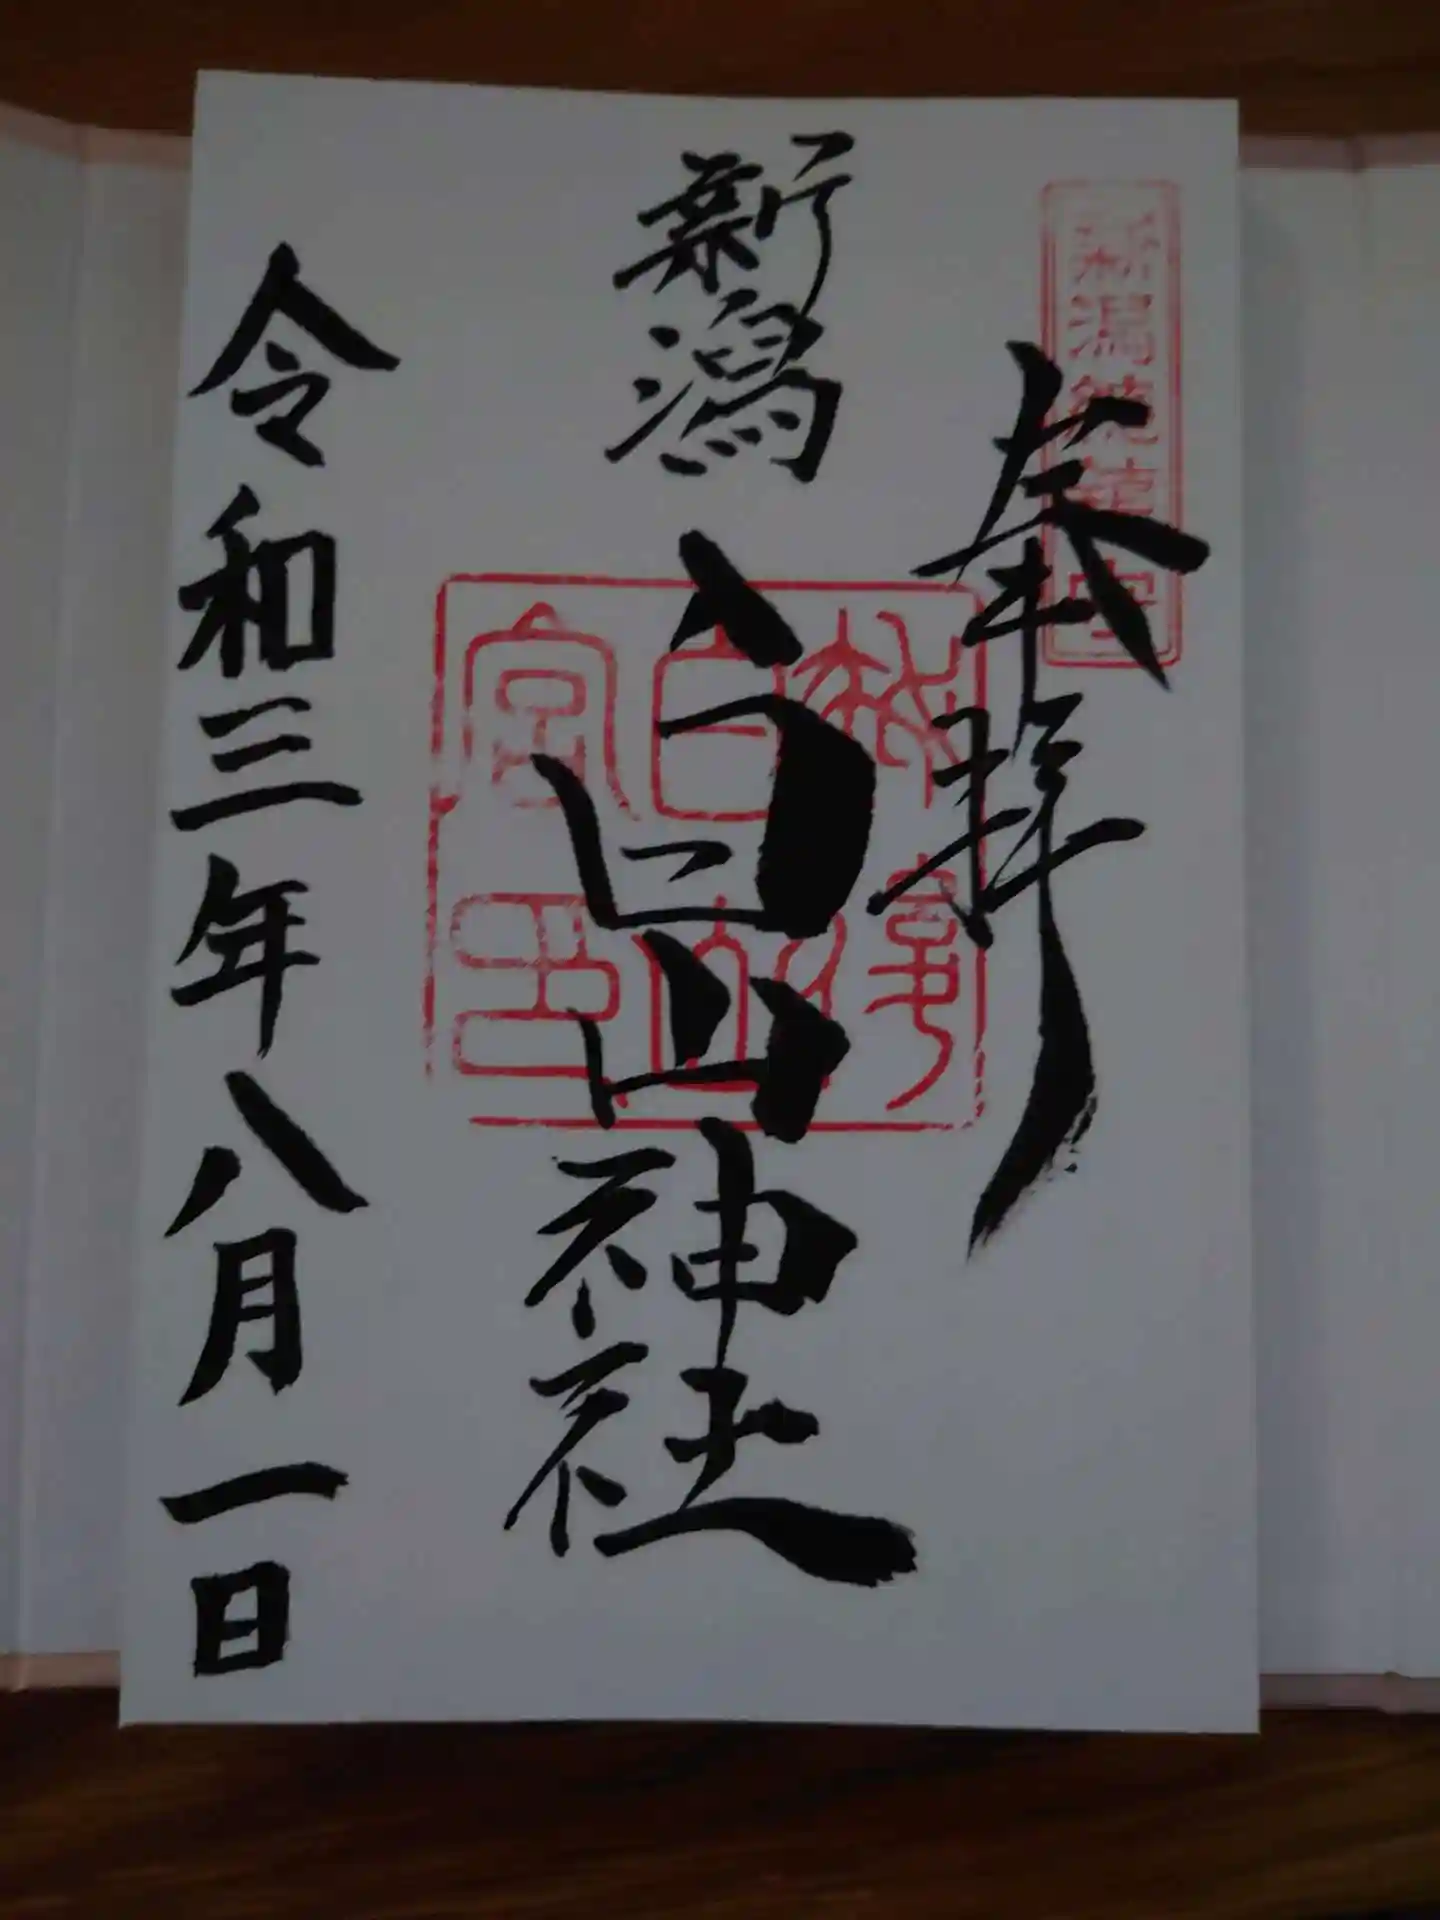 奉拝
新潟總鎮守
新潟白山神社
越後
白山
宮印
令和三年八月一日